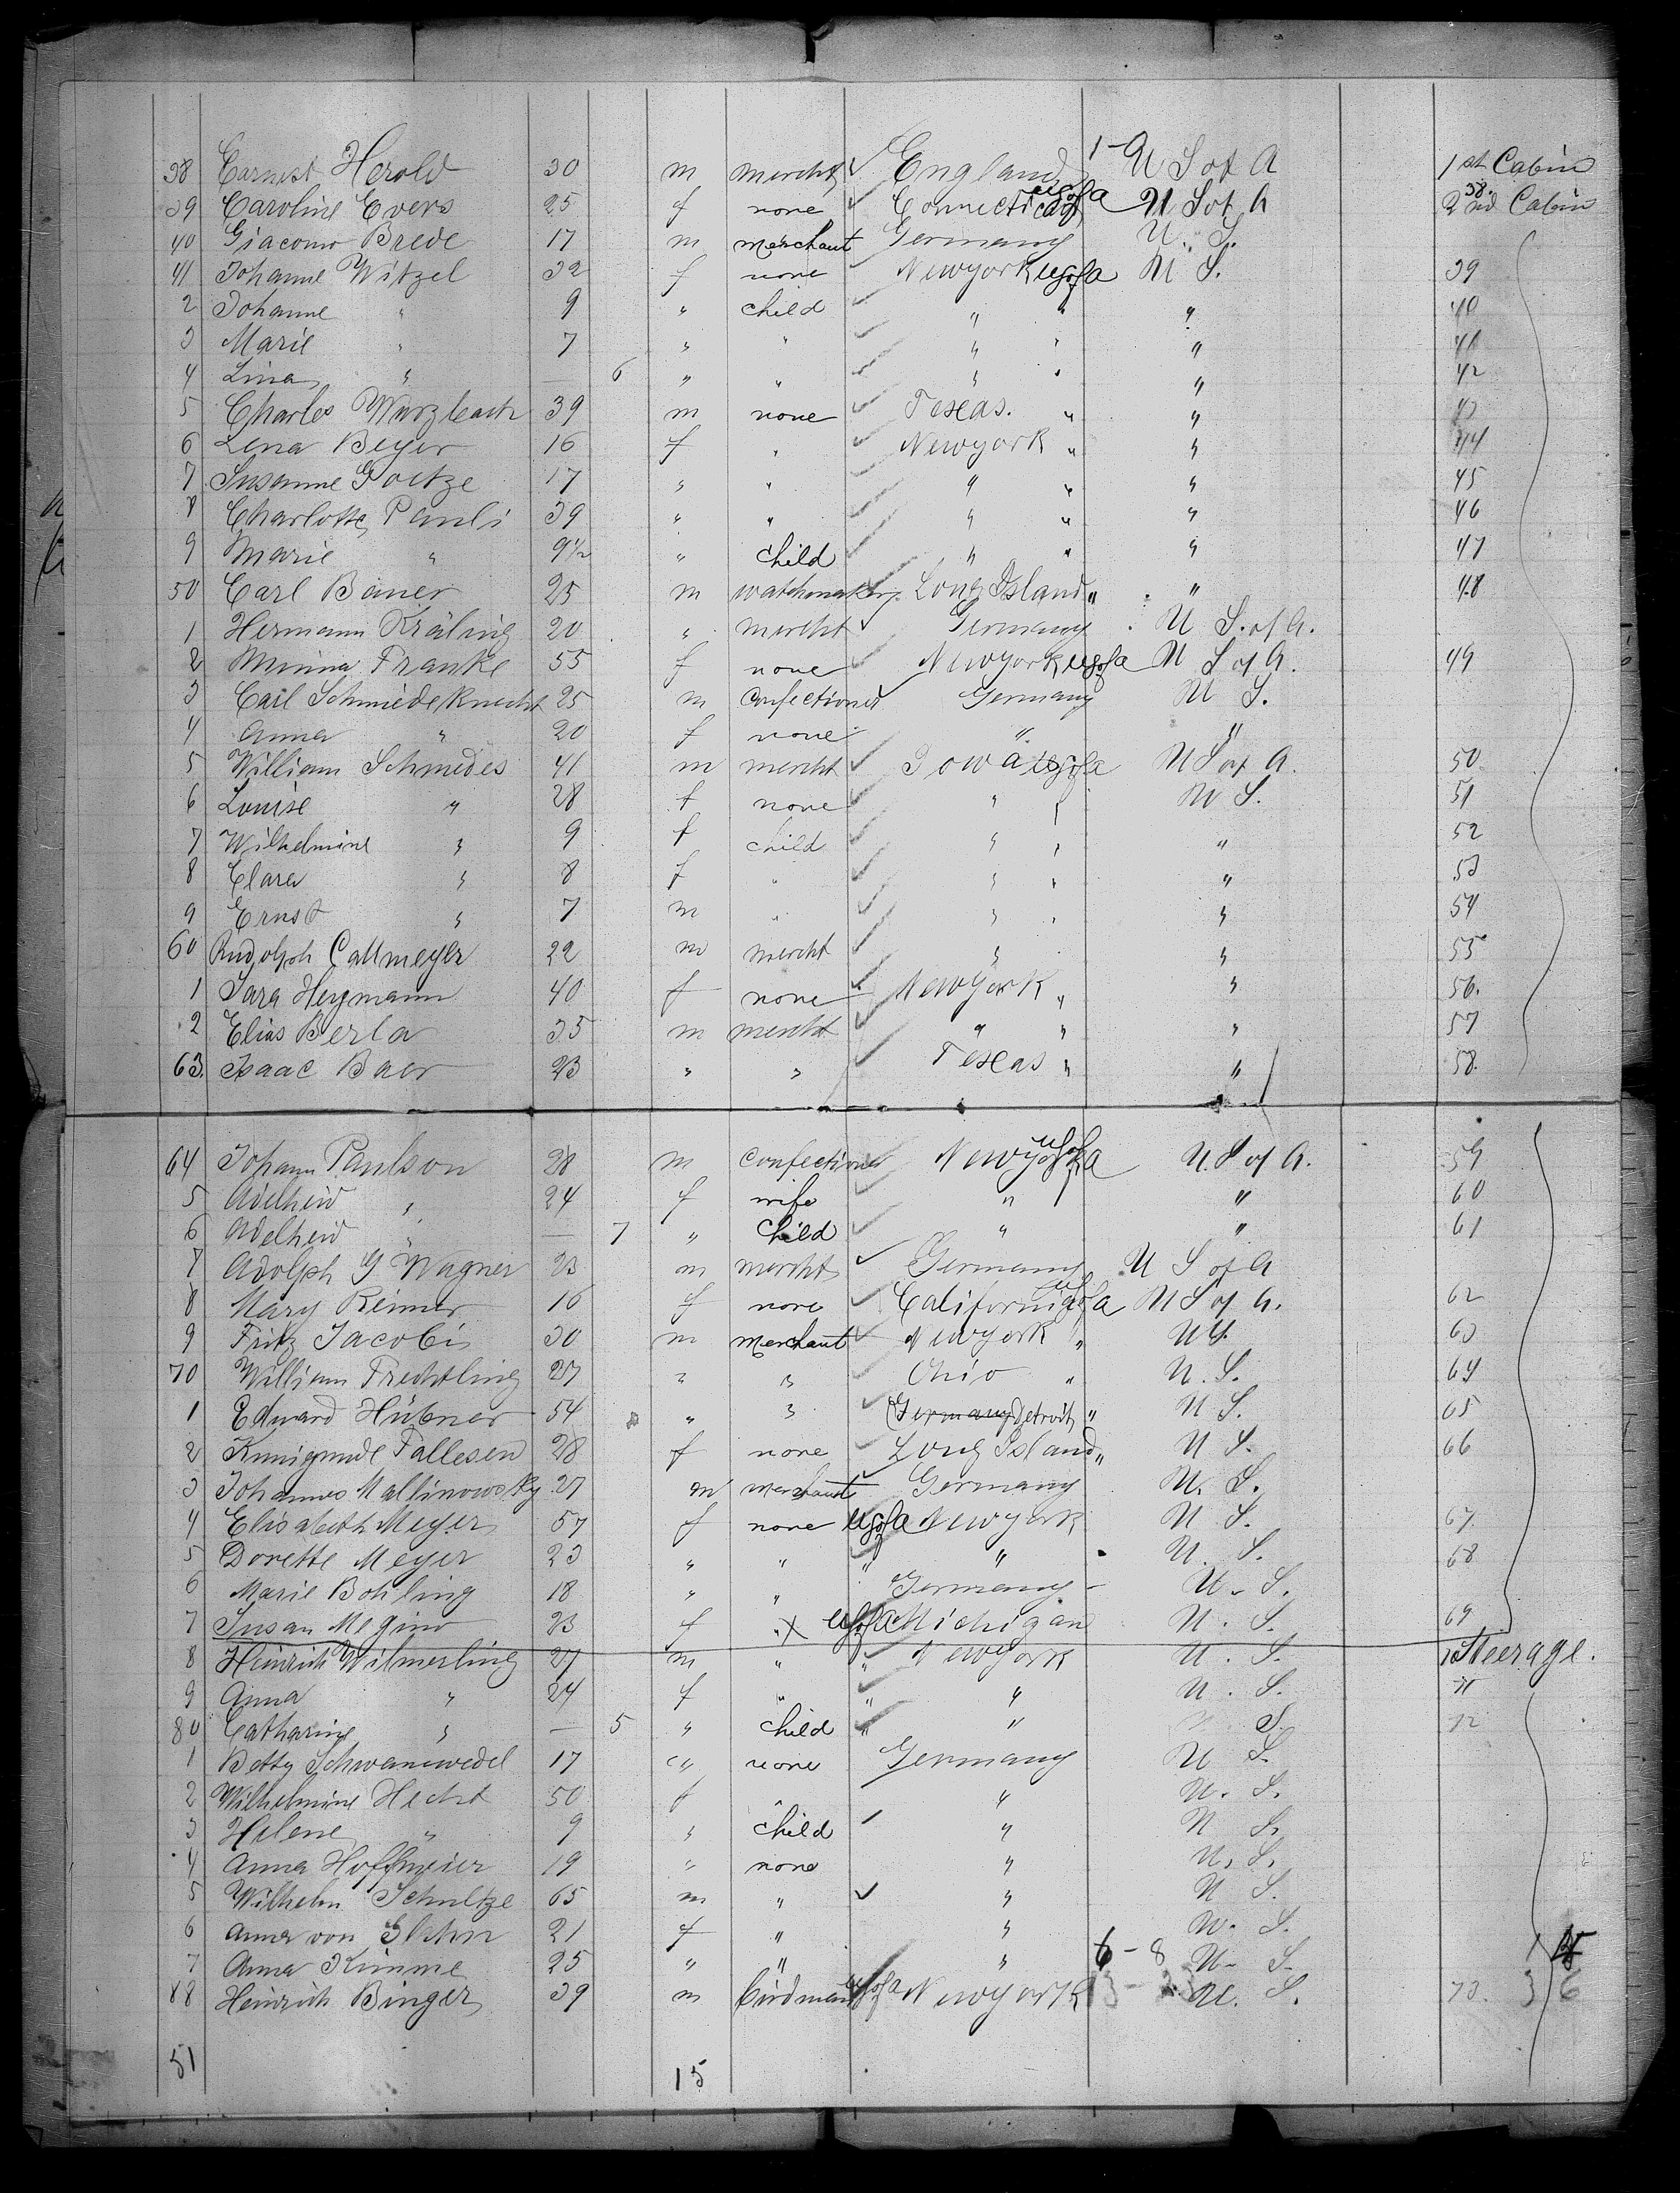 38 Earnest Herold 30 m mercht England 1- U S of A 1st Cabin
39 Caroline Evers 25 f none Connecticut U S of A U S of A 38. 2nd Cabin
40 Giacomo Brede 17 m merchant Germany U. S.
41 Johanne Witzel 32 f none Newyork U S of A U S. 39
2 Johanne " 9 " child " " " 40
3 Marie " 7 " " " " " 41
4 Lina " — 6 " " " " " 42
5 Charles Wurzbach 39 m none Texas. " " 43
6 Lena Beyer 16 f " Newyork " " 44
7 Susanne Goetze 17 " " " " " 45
8 Charlotte Pauli 39 " " " " " 46
9 Marie " 9½ " child " " " 47
50 Carl Bauer 25 m watchmaker Long Island " " 48
1 Hermann Kräling 20 " mercht Germany U S. of A.
2 Minna Franke 55 f none Newyork U S of A U S of A. 49
3 Carl Schmiedeknecht 25 m Confectioner Germany U S.
4 Anna " 20 f none " "
5 William Schmedes 41 m mercht Iowa U S of A U S of A. 50
6 Louise " 28 f none " " U S. 51
7 Wilhelmine " 9 f child " " " 52
8 Clara " 8 f " " " " 53
9 Ernst " 7 m " " " " 54
60 Rudolph Cattmeyer 22 m mercht " " 55
1 Sara Heymann 40 f none Newyork " " 56.
2 Elias Berla 35 m mercht " " " 57
63. Isaac Baer 23 " " Texas " " 58.
64 Johann Paulson 28 m confectioner Newyork U S of A U. S of A. 59
5 Adelheid " 24 f wife " " 60
6 Adelheid " — 7 " child " " 61
7 Adolph G Wagner 23 m mercht Germany U S of A
8 Mary Reimer 16 f none California U S of A U S of A. 62
9 Fritz Jacobi 30 m merchant Newyork " U S. 63
70 William Frechtling 27 " " Ohio " U. S. 64
1 Edward Hübner 54 " " Germany Detroit " U S. 65
2 Kunigunde Fallesen 28 f none Long Island " U S. 66
3 Johannes Mallinowsky 27 m merchant Germany U. S.
4 Elisabeth Meyer 57 f none U S of A Newyork U S. 67
5 Dorette Meyer 23 " " " " U. S. 68
6 Marie Bohling 18 " " Germany - U. S.
7 Susan Megino 23 f " x U S of A Michigan U. S. 69
8 Heinrich Wilmerling 27 m " " Newyork U. S. 70 Steerage.
9 Anna " 24 f " " " U. S. 71
80 Catharine " — 5 " child " " U. S. 72
1 Betty Schwanewedel 17 " none Germany U S.
2 Wilhelmine Hecht 50 f " " U. S.
3 Helene " 9 " child " U S.
4 Anna Hoffmeier 19 " none " U. S.
5 Wilhelm Schultze 65 m " " U S.
6 Anna von Glahn 21 f " " U. S.
7 Anna Kimme 25 " " " 6 - 8 U. S.
88 Heinrich Binger 39 m U S of A Newyork U. S. 73. 36
51 15